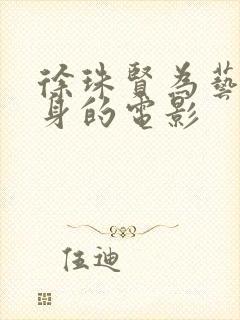 徐珠賢為藝
身的電影
伍迪